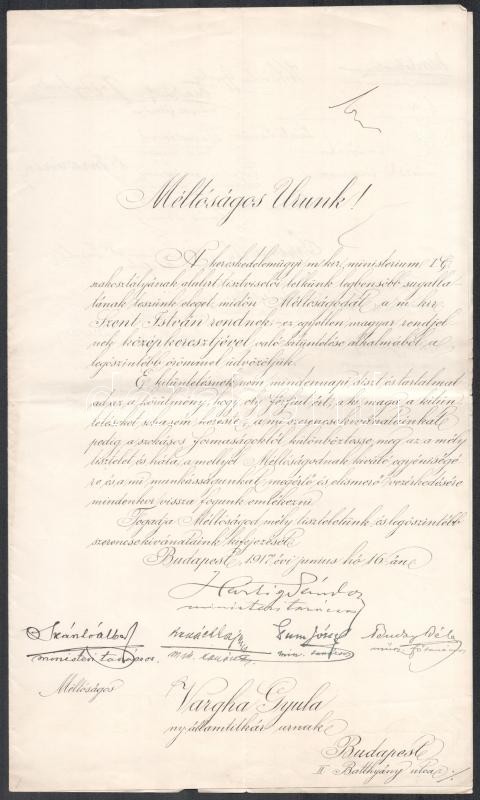 Méltóságos Urunk!
A kereskedelemügyi m. kir. ministerium I G.
szakosztályának alulírt tisztviselői lelkünk legbensőbb sugalla-
tának teszünk eleget midőn Méltóságodat a m. kir.
Szent István rendnek – ez egyetlen magyar rendjel-
nek középkeresztjével való kitüntetése alkalmából a
legőszintébb örömmel üdvözöljük.
E kitüntetésnek nem mindennapi díszt és tartalmat
ad az a körülmény, hogy oly férfiút ért, a ki maga a kitün-
tetéseket soha sem kereste, a mi szerencsekívánatainkat
pedig a szokásos formaságoktól különböztesse meg az a mély
tisztelet és hála, a mellyel Méltóságodnak kiváló egyéniségé-
re és a mi munkásságunkat megértő és elismerő vezérkedésére
mindenkor vissza fogunk emlékezni.
Fogadja Méltóságod mély tiszteletünk és legőszintébb
szerencsekívánataink kifejezését.
Budapest, 1917 évi junius hó 16-án
Hartig Sándor
ministeri tanácsos
Szántó Albert
ministeri tanácsos.
min. tanácsos.
Gum József
min. tanácsos
Béla
Méltóságos
Vargha Gyula
ny. államtitkár urnak
Budapest
II Batthyány utca